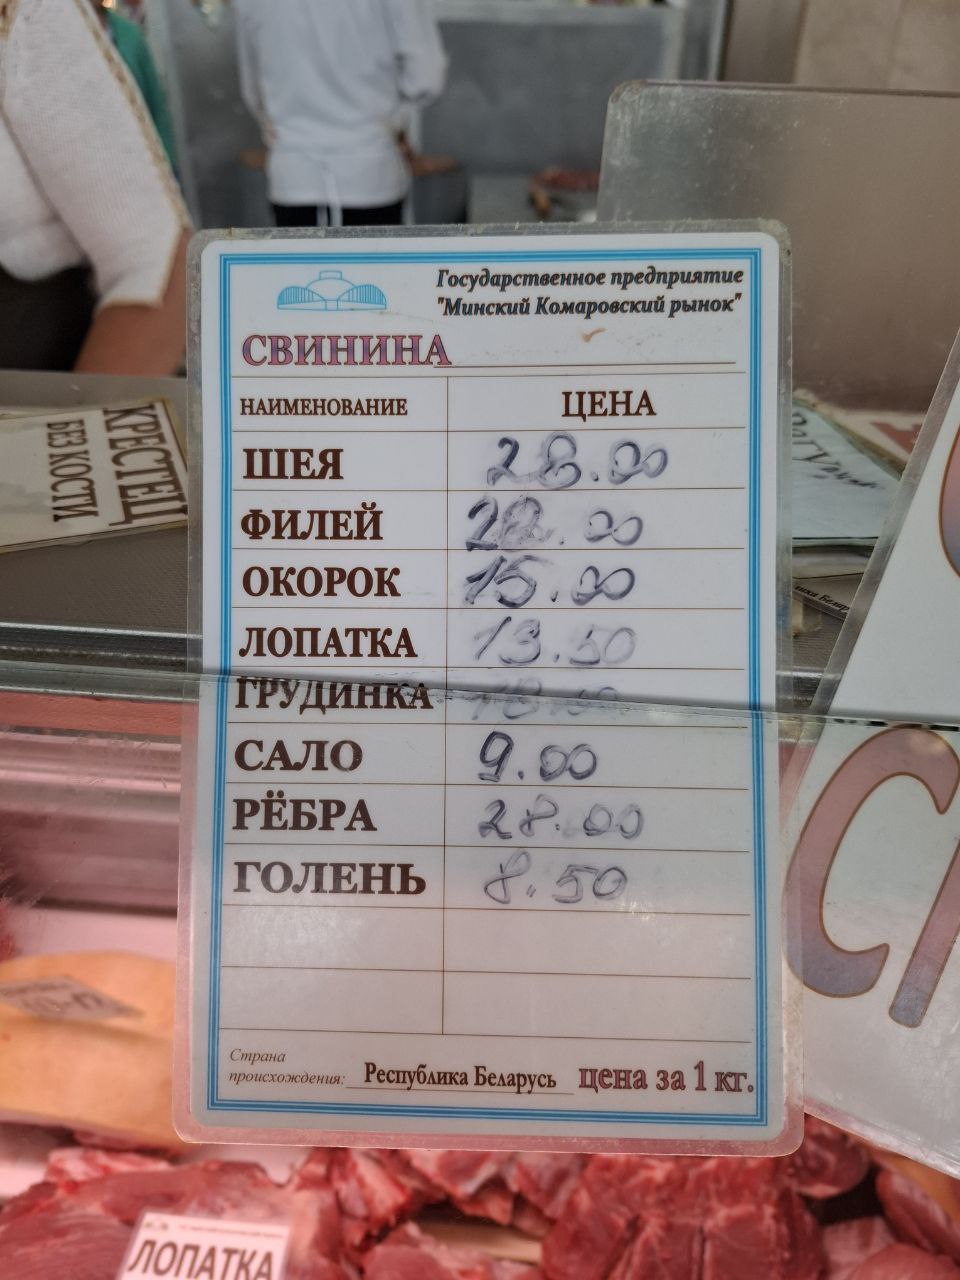 Государственное предприятие
"Минский Комаровский рынок"
СВИНИНА
НАИМЕНОВАНИЕ ЦЕНА
ШЕЯ 28.00
ФИЛЕЙ 28.00
ОКОРОК 15.00
ЛОПАТКА 13.50
ГРУДИНКА
САЛО 9.00
РЁБРА 28.00
ГОЛЕНЬ 8.50
Страна
происхождения: Республика Беларусь цена за 1 кг.
КРЕСТЕЦ
БЕЗ КОСТИ
ЛОПАТКА